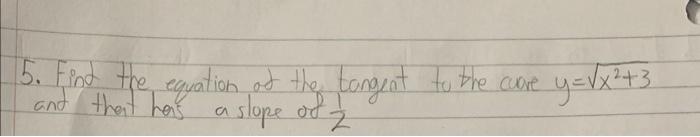 5. Find the equation of the tangent to the curve y=√x²+3
and that has a slope of 1/2